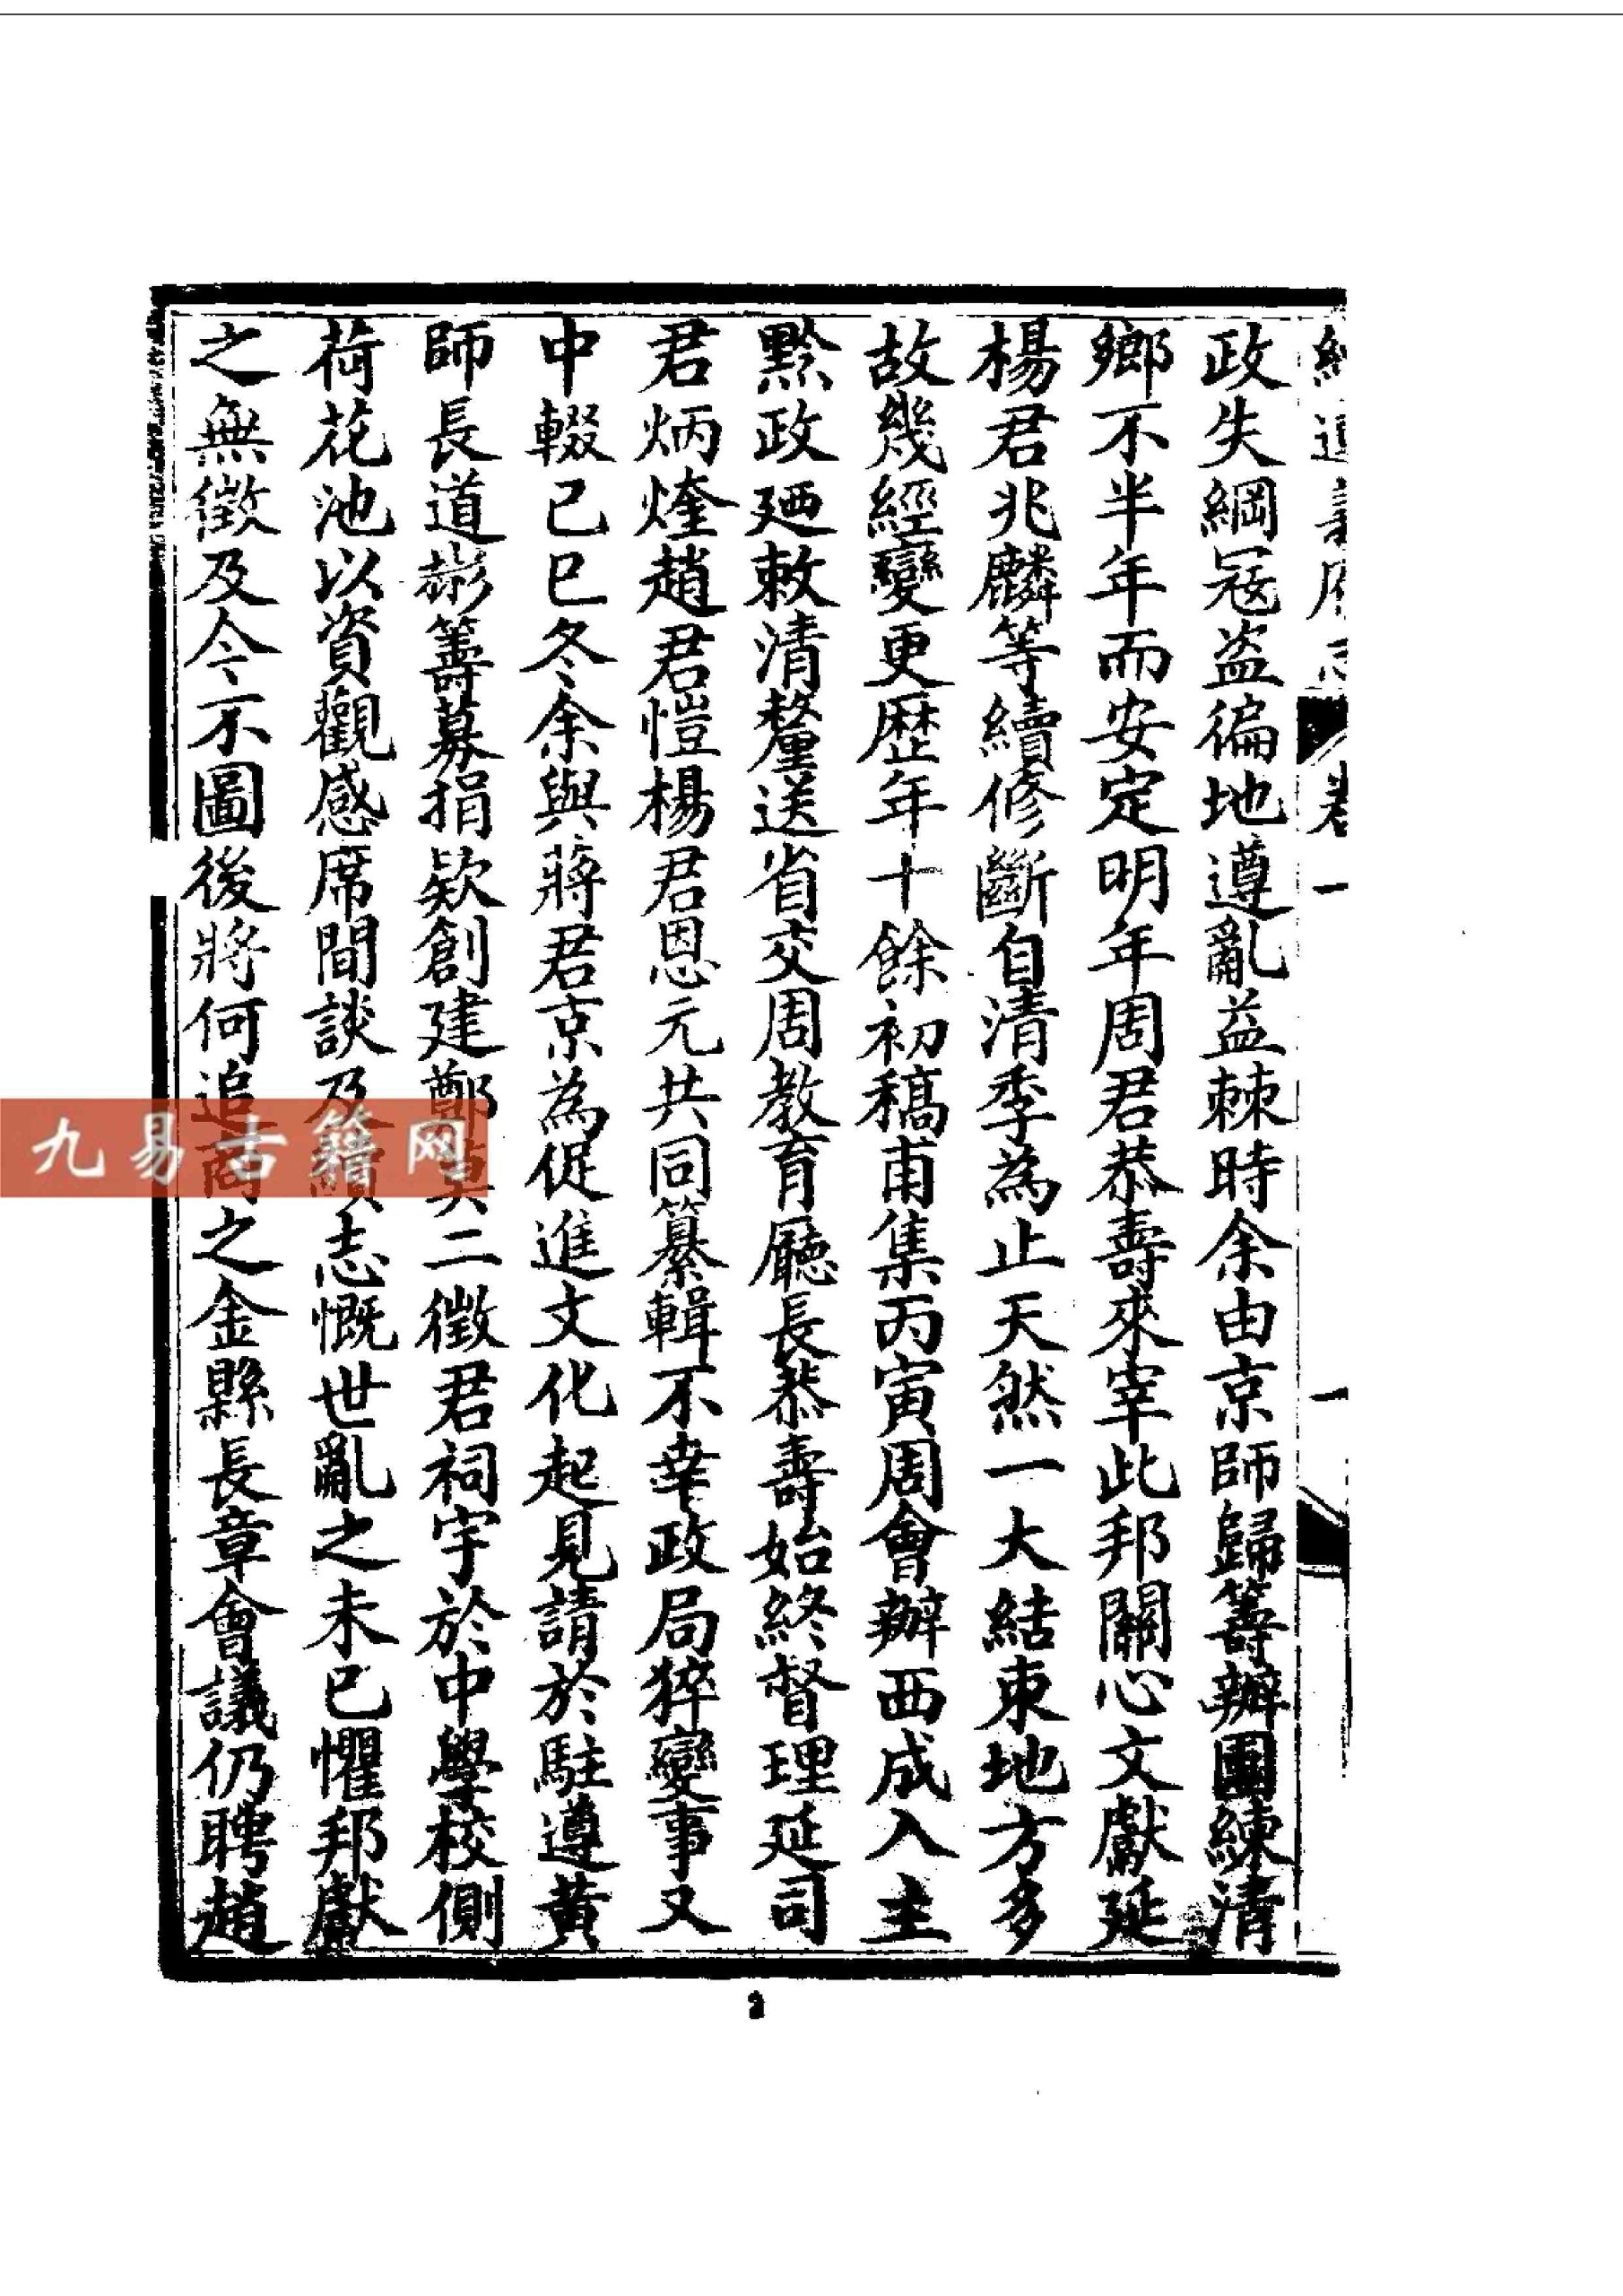 續遵義府志 卷一 一
政失綱寇盗徧地遵亂益棘時余由京師歸籌辦團練清
鄉不半年而安定明年周君恭壽來宰此邦關心文獻延
楊君兆麟等續修斷自清季為止天然一大結束地方多
故幾經變更歴年十餘初稿甫集丙寅周會辦西成入主
黔政廼敕清釐送省交周教育廳長恭壽始終督理延司
君炳煃趙君愷楊君恩元共同纂輯不幸政局猝變事又
中輟已巳冬余與蔣君京為促進文化起見請於駐遵黄
師長道彬籌募捐欵創建鄭莫二徵君祠宇於中學校側
荷花池以資觀感席間談及續志慨世亂之未已懼邦獻
之無徵及今不圖後將何追商之金縣長章會議仍聘趙
九易古籍网
2